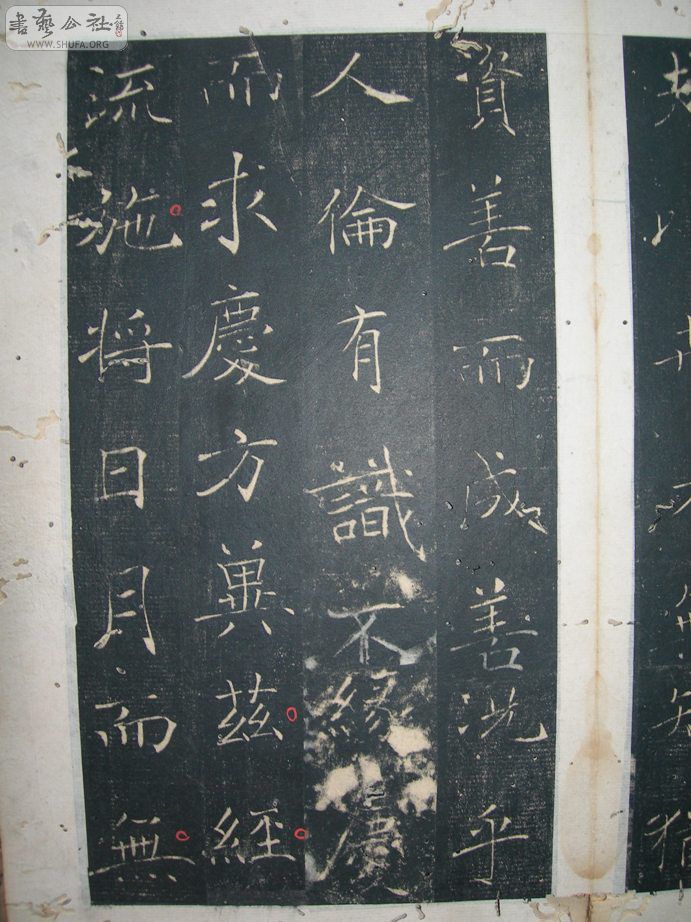 書藝公社
WWW.SHUFA.ORG
資善而成善況乎
人倫有識不緣慶
而求慶方冀茲經
流施将日月而無